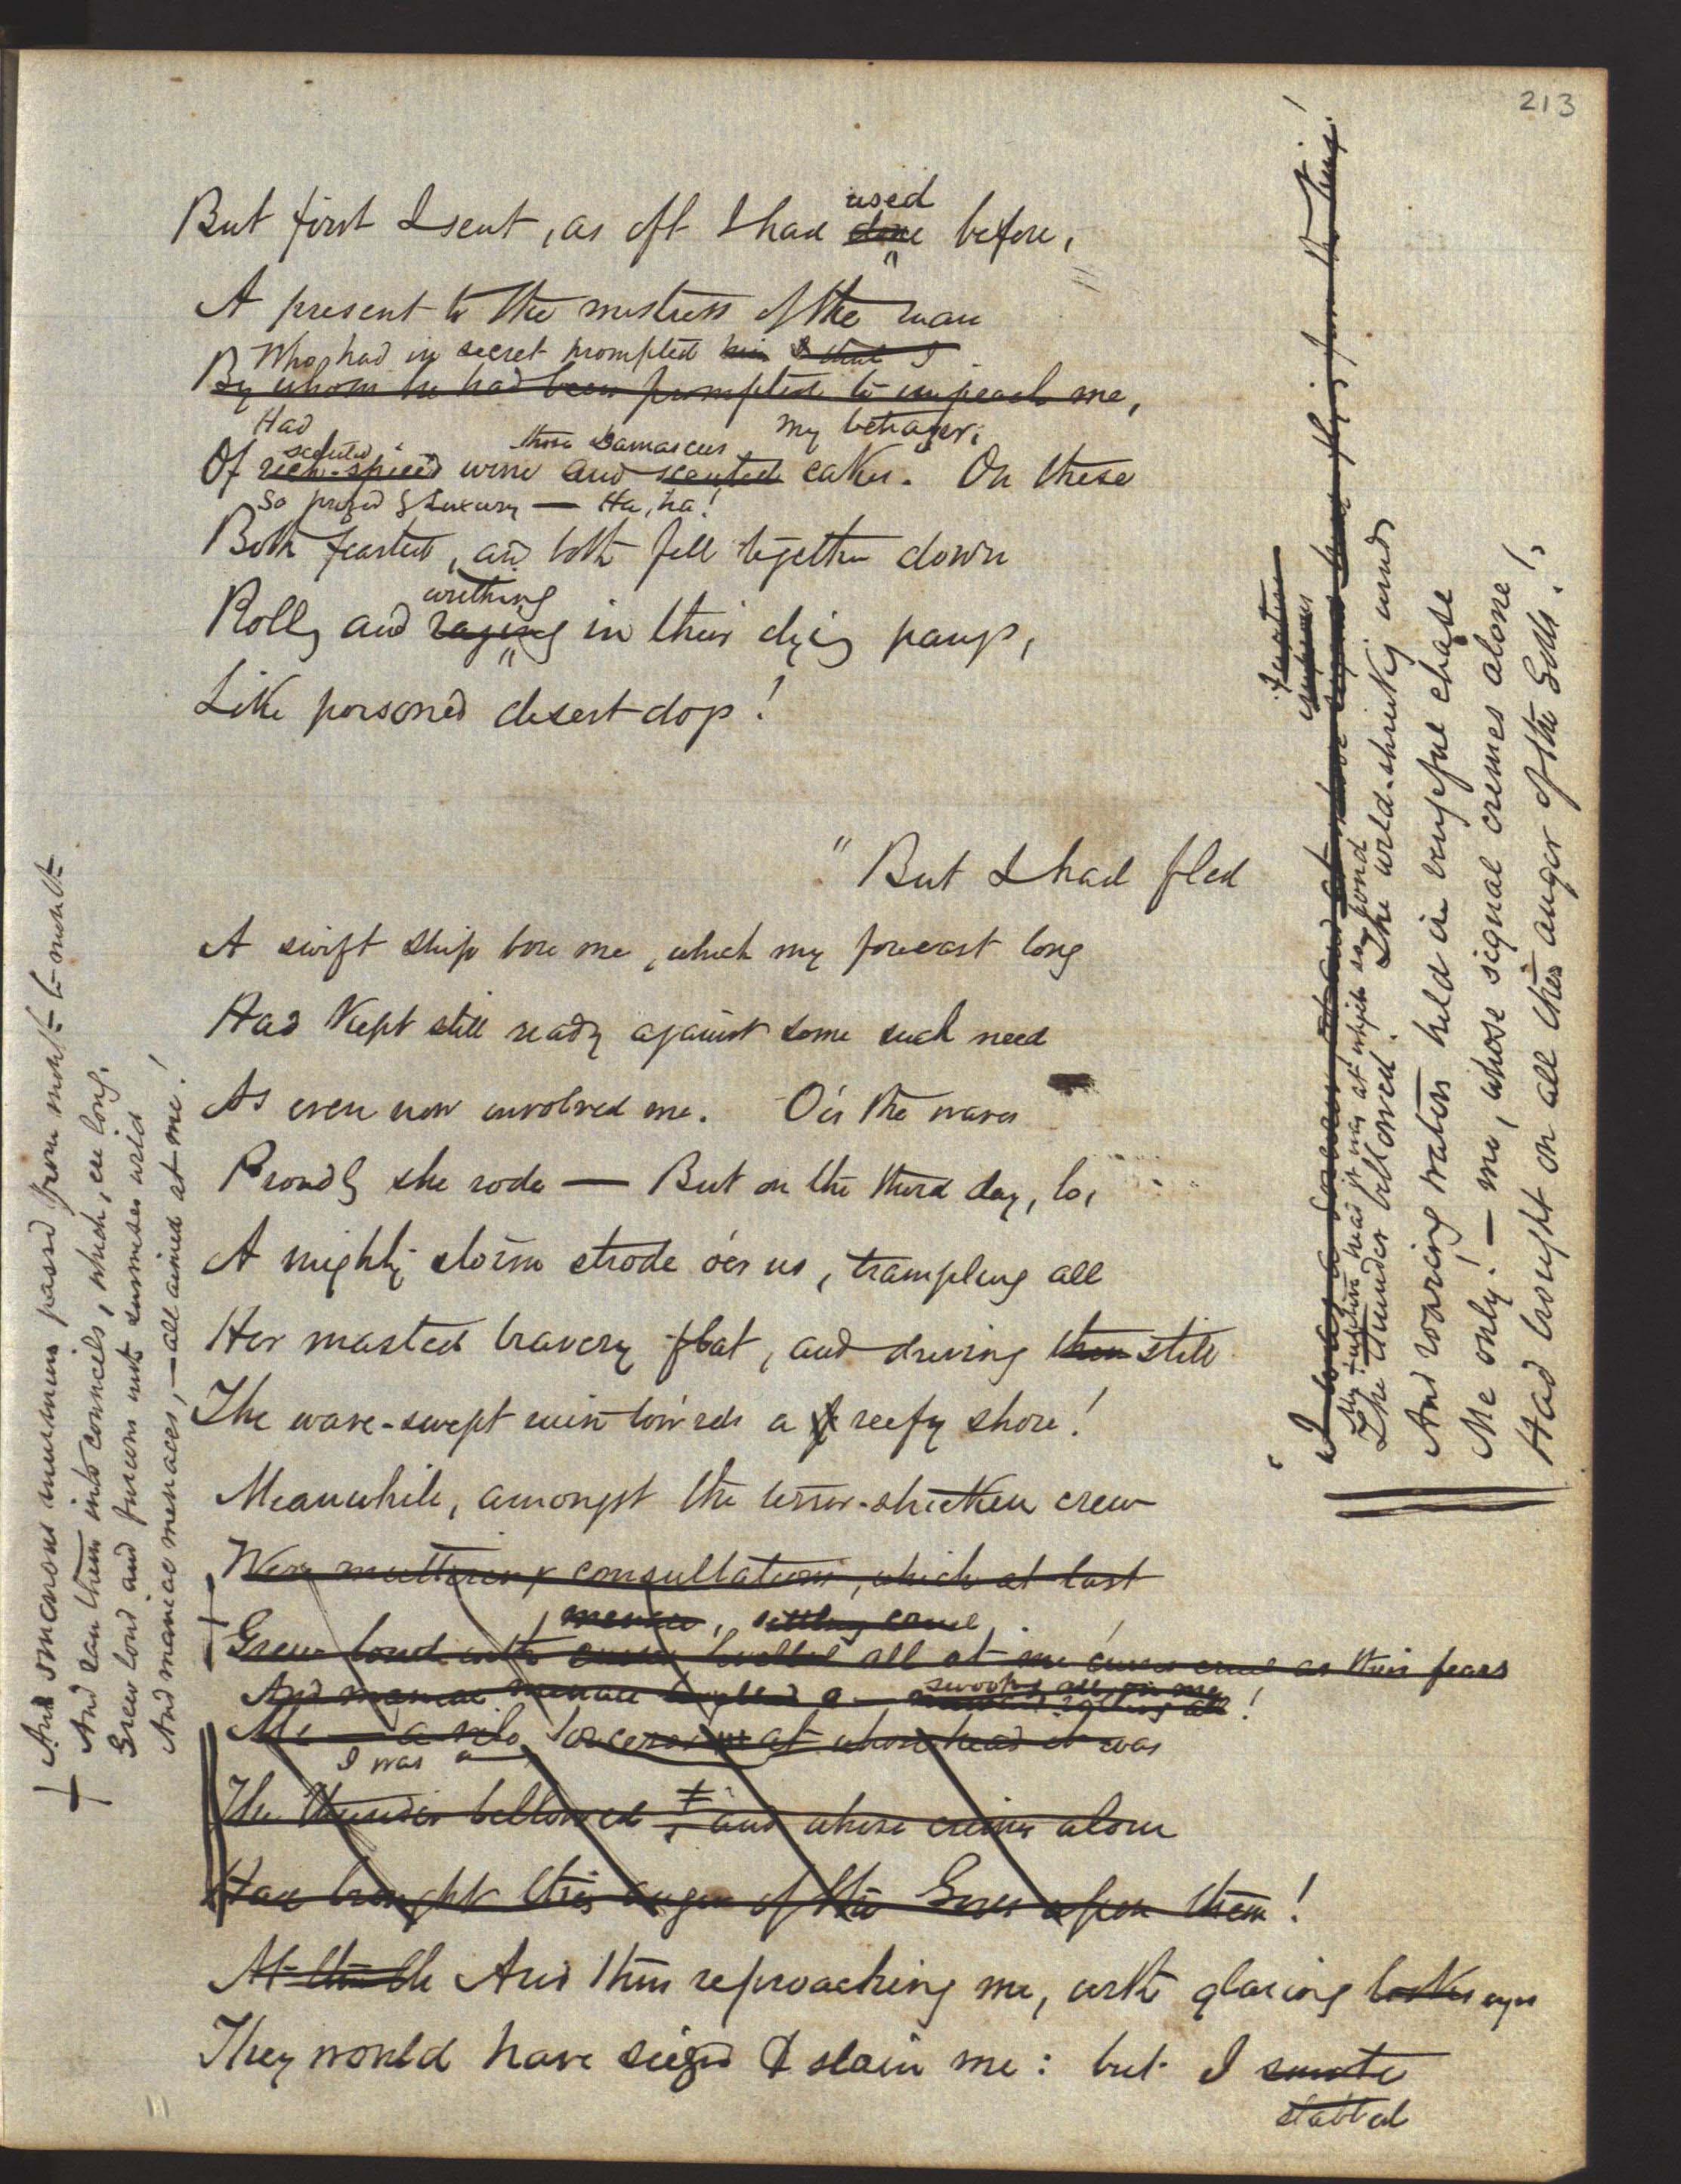 213
But first I sent, as oft I had done used before,
A present to the mistress of the man
Who had in secret prompted him
By whom he had been prompted to impeach me,
Had my betrayer;
scented those Damascus
Of rich-spiced wine and scented cakes. On these
So prized by Luxury — Ha, ha!
Both feasted, and both fell together down
writhing
Rollg and raging in their dying pangs,
Like poisoned desert-dogs!
"But I had fled
A swift ship bore me, which my forecast long
Had kept still ready against some such need
As even now involved me. O'er the waves
Proudly she rode — But on the third day, lo,
A mighty storm strode o'er us, trampling all
Her masted bravery flat, and driving then still
The wave-swept ruin tow'rds a reefy shore!
Meanwhile, amongst the terror-stricken crew
Were mutterings consultations, which at last
menace,
Grew loud with curses levelled all at me curses cruel as their fears
And maniac menace
swoopg all on me
Me — a vile sorcerer at whose head it was
I was a
The thunder bellowed, and whose crimes alone
Had brought this anger of the Gods upon them!
And thus reproaching me, with glaring looks eyes
They would have seized & slain me: but I smote
stabbed
And omenous murmurs passed from mouth to mouth
And ran them into councils, which, ere long,
Grew loud and furious into surmises wild
And maniac menaces, — all aimed at me!
I was a sorcerer,
head it was at which in
The thunder bellowed! The wild-shrieking winds
And roaring waters held in vengeful chase
Me only! — me, whose signal crimes alone
Had brought on all this anger of the Gods!